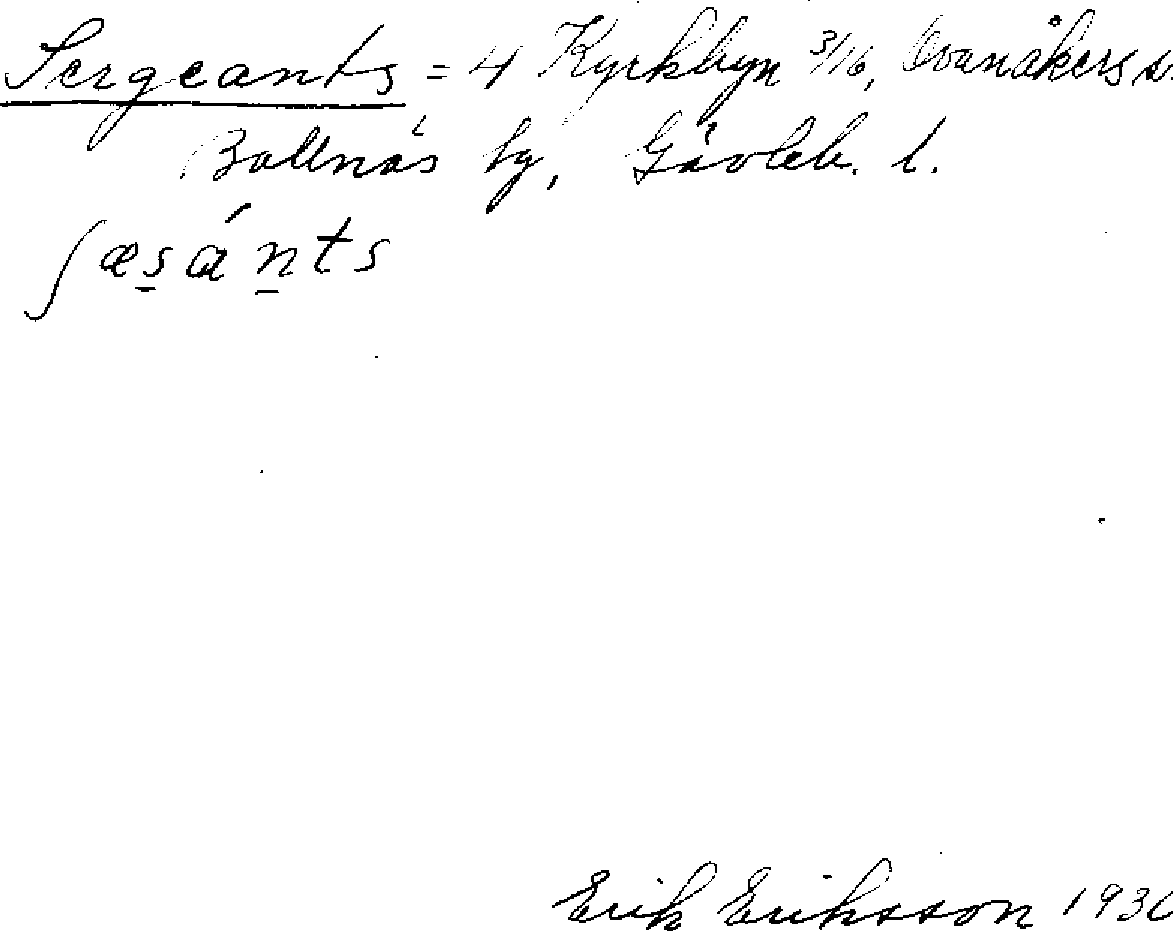 Sergeants = 4 Kyrkbyn 3/16, Ovanåkers s.
Bollnäs tg, Gävleb. l.
ʃæsánts
Erik Eriksson 1930